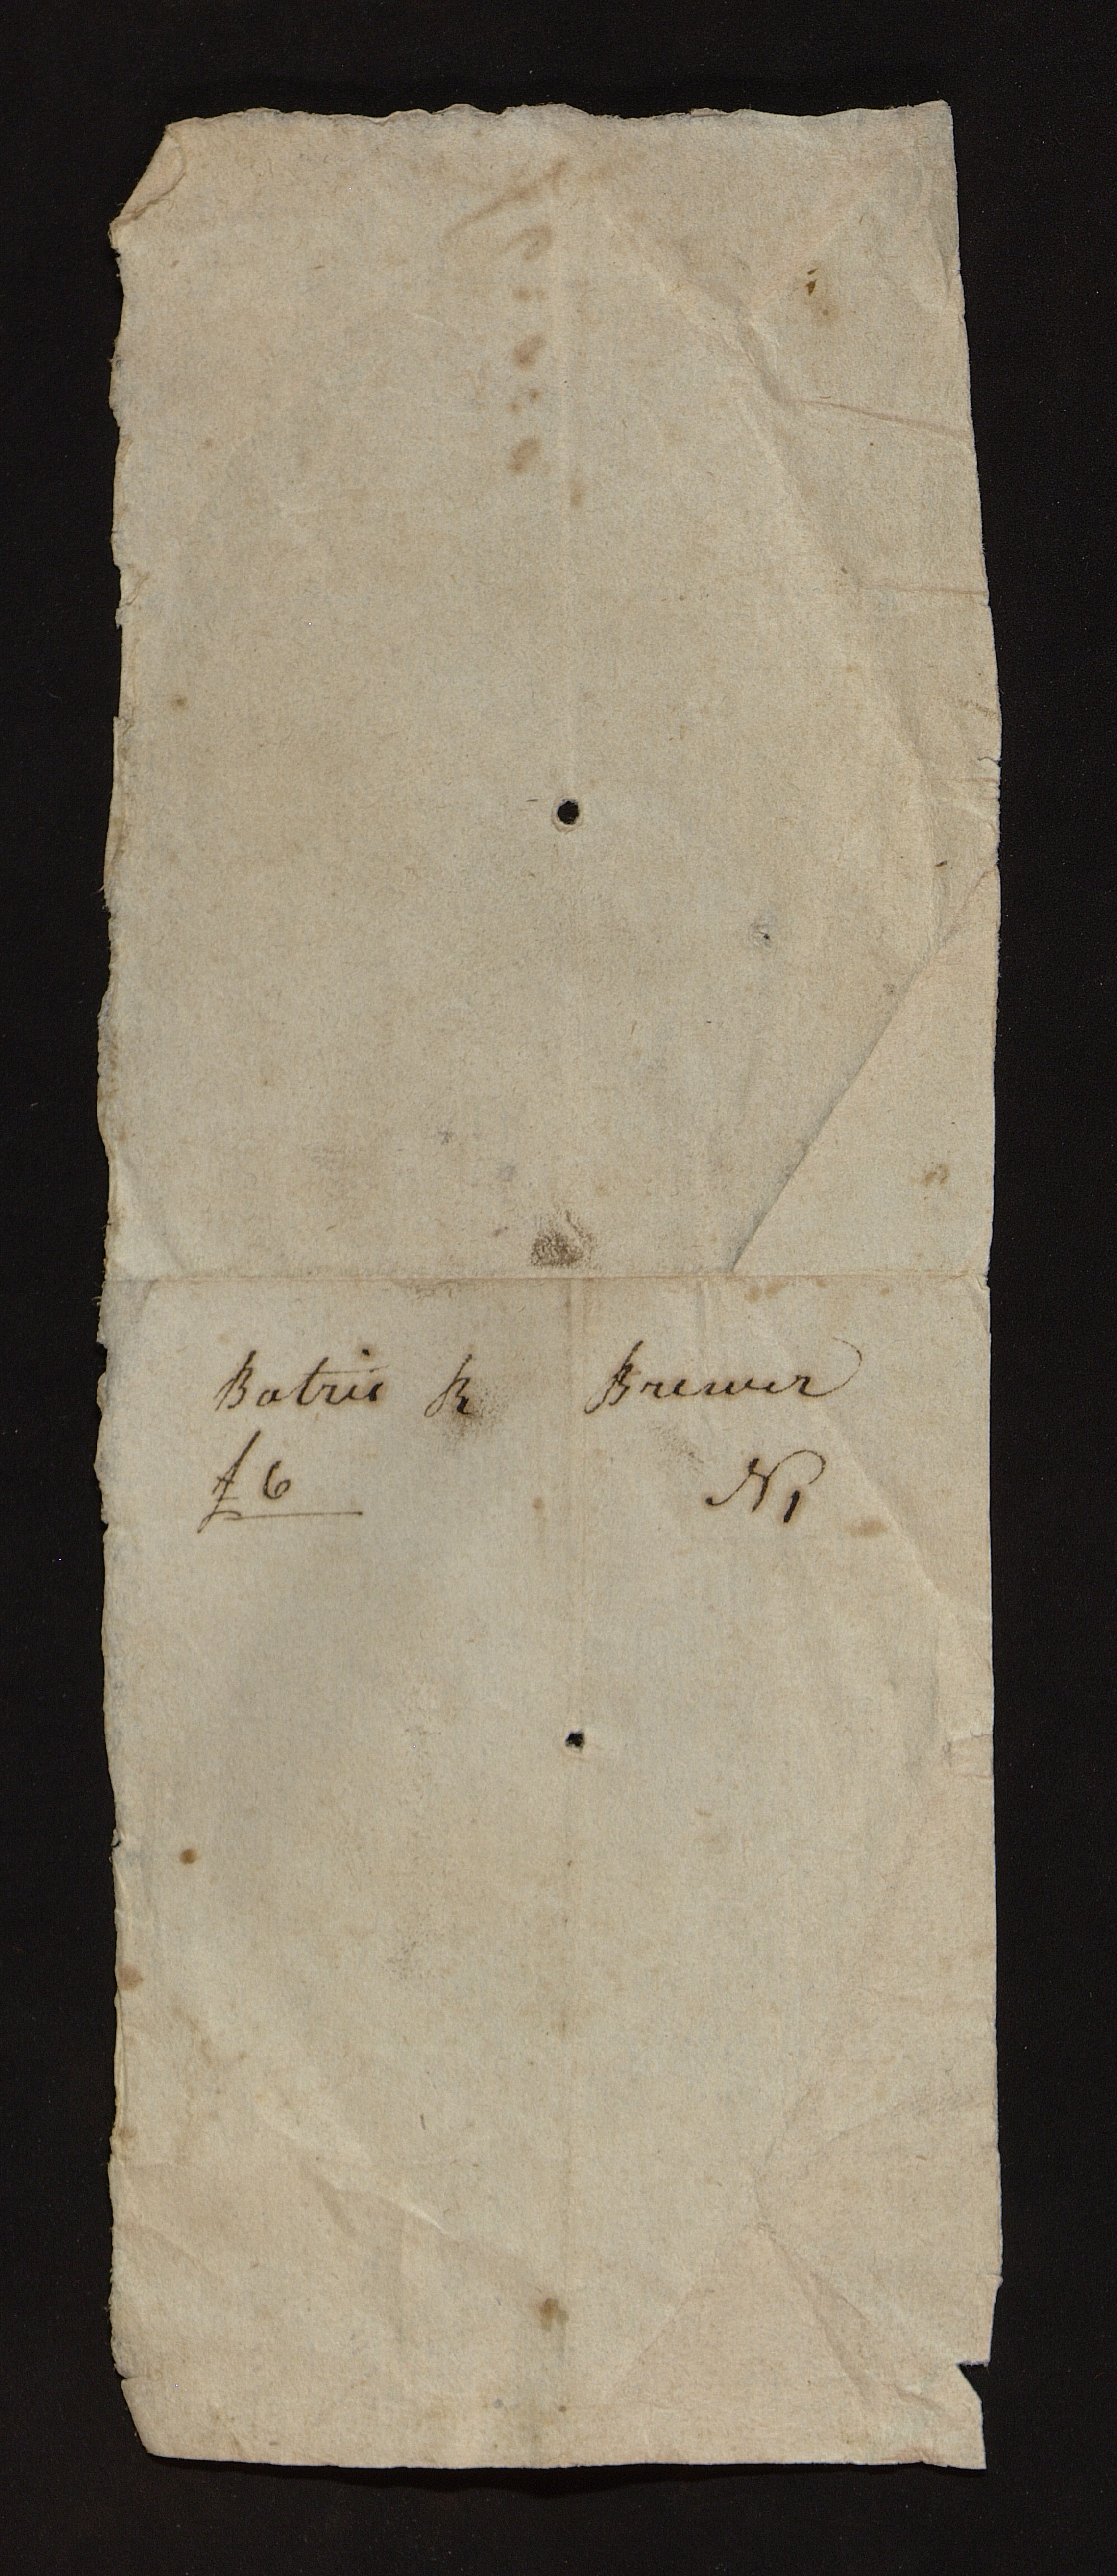 Batric R Brewer
£6 N1